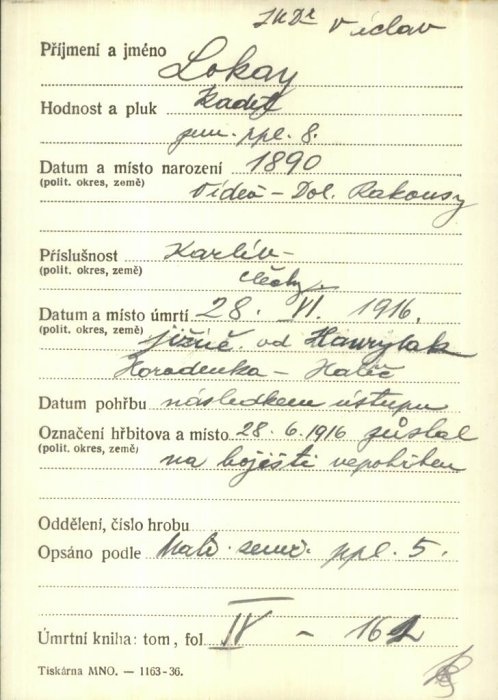 JUDr Václav
Příjmení a jméno Lokay
Hodnost a pluk Kadet
zem. ppl. 8.
Datum a místo narození 1890
(polit. okres, země) Vídeň - Dol. Rakousy
Příslušnost Karlín -
(polit. okres, země) Čechy
Datum a místo úmrtí 28. VI. 1916.
(polit. okres, země) jižně od Hawrylak
Horodenka - Halič
Datum pohřbu následkem ústupu
Označení hřbitova a místo 28.6.1916 zůstal
(polit. okres, země) na bojišti nepohřben
Oddělení, číslo hrobu
Opsáno podle Matr. zem. ppl. 5.
Úmrtní kniha: tom, fol IV - 161
Tiskárna MNO. — 1163-36.